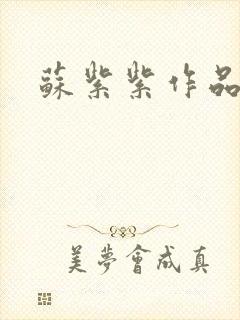 蘇紫紫作品
美夢會成真